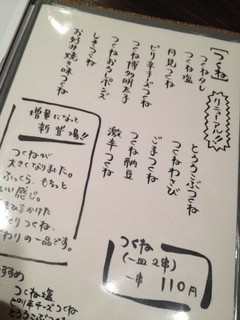 「つくね」
リニューアル!!
つくねタレ
つくね塩
月見つくね
ピリ辛チーズつくね
つくね博多明太子
つくねおろしポンズ
しそつくね
お好み焼き味つくね
とろろこぶつくね
つくねわさび
ごまつくね
つくね納豆
激辛つくね
増量になって
新登場!!
つくねが
大きくなりました。
ふっくら、もちっと
いい感じ。
つくね
(一皿2串)
一串 110円
つくね塩
ピリ辛チーズつくね
とろろこぶつくね